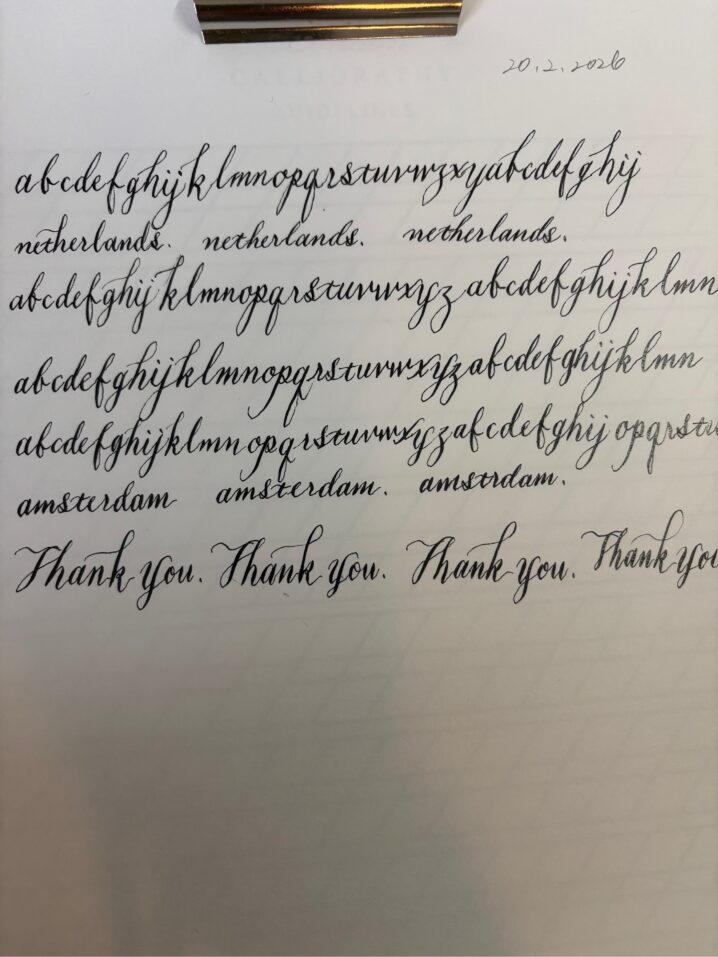 CALLIGRAPHY
GUIDELINES
20.2.2026
abcdefghijklmnopqrstuvwzxyabcdefghij
netherlands. netherlands. netherlands.
abcdefghijklmnopqrstuvwxyz abcdefghijklmn
abcdefghijklmnopqrstuvwxyzabcdefghijklmn
abcdefghijklmnopqrstuvwxyzafcdefghijopqrstu
amsterdam amsterdam. amstrdam.
Thank you. Thank you. Thank you. Thank you